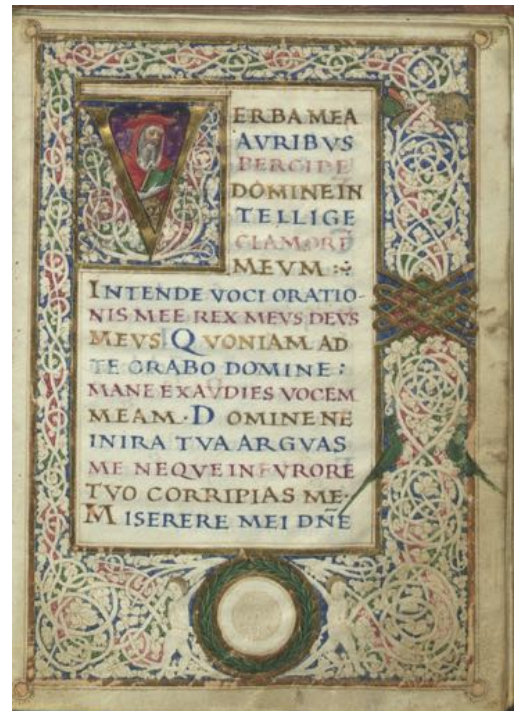 VERBA MEA
AVRIBVS
PERCIPE
DOMINE IN
TELLIGE
CLAMORE
MEVM :
INTENDE VOCI ORATIO-
NIS MEE REX MEVS DEVS
MEVS QVONIAM AD
TE ORABO DOMINE :
MANE EXAVDIES VOCEM
MEAM · DOMINE NE
IN IRA TVA ARGVAS
ME NEQVE IN FVRORE
TVO CORRIPIAS ME ·
MISERERE MEI DN̄E